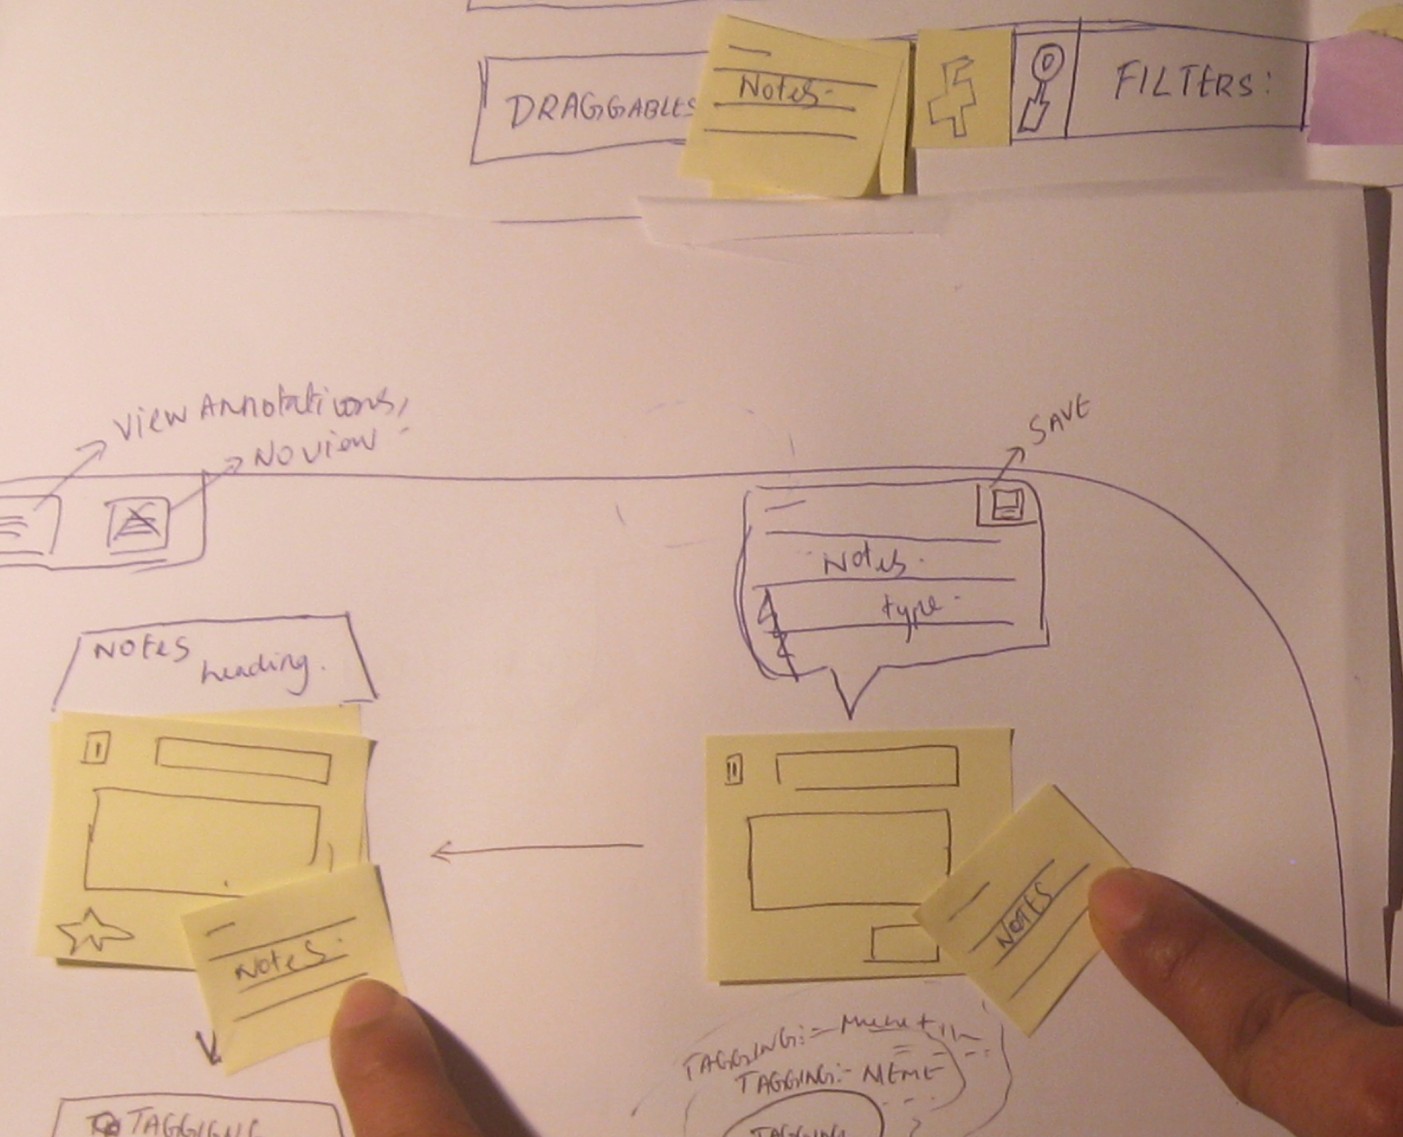 DRAGGABLES
Notes
FILTERS:
View Annotations,
NO view
SAVE
Notes
type
Notes
heading.
Notes:
NOTES
TAGGING:-
TAGGING:- MEME
TAGGING
TAGGIGNG